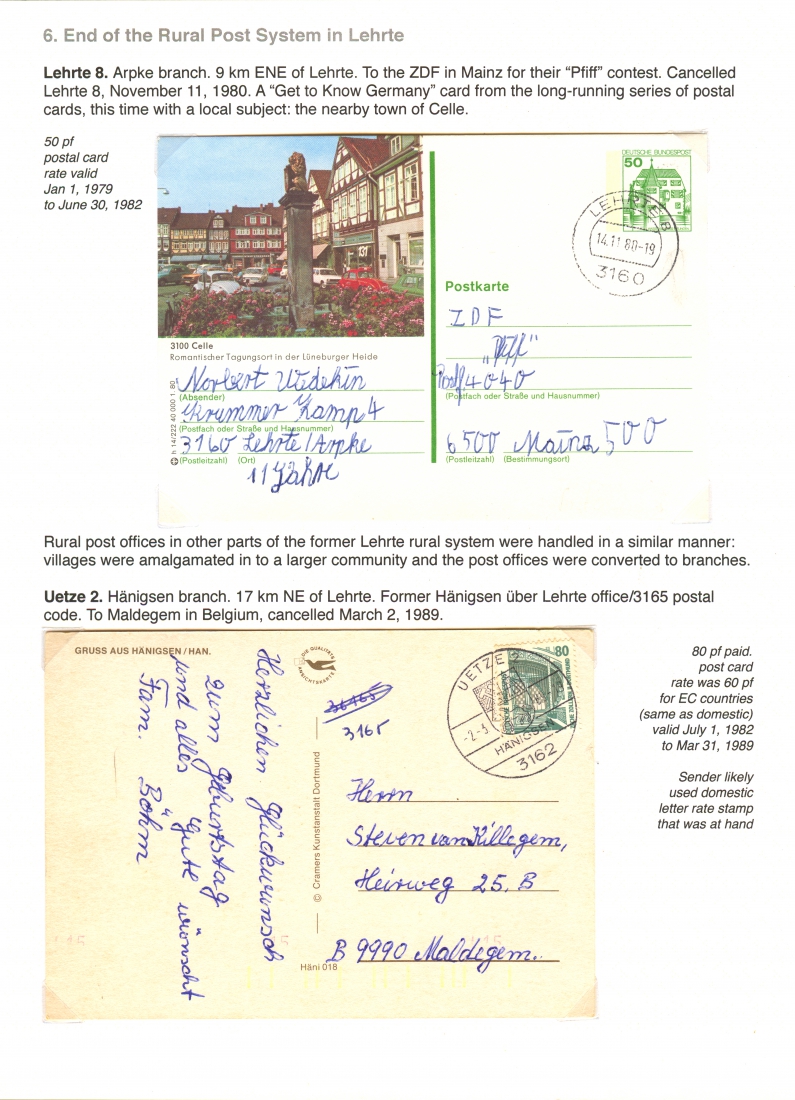 6. End of the Rural Post System in Lehrte
Lehrte 8. Arpke branch. 9 km ENE of Lehrte. To the ZDF in Mainz for their “Pfiff” contest. Cancelled
Lehrte 8, November 11, 1980. A “Get to Know Germany” card from the long-running series of postal
cards, this time with a local subject: the nearby town of Celle.
50 pf
postal card
rate valid
Jan 1, 1979
to June 30, 1982
DEUTSCHE BUNDESPOST
50
LEHRTE 8
14.11.80-19
3160
131
Postkarte
ZDF
„Pfiff“
Postf 4040
(Postfach oder Straße und Hausnummer)
6500 Mainz 500
(Postleitzahl) (Bestimmungsort)
3100 Celle
Romantischer Tagungsort in der Lüneburger Heide
Norbert Wedekin
(Absender)
Krummer Kamp 4
(Postfach oder Straße und Hausnummer)
3160 Lehrte/Arpke
(Postleitzahl) (Ort)
11 Jahre
h 14/222 40 000 1. 80
Rural post offices in other parts of the former Lehrte rural system were handled in a similar manner:
villages were amalgamated in to a larger community and the post offices were converted to branches.
Uetze 2. Hänigsen branch. 17 km NE of Lehrte. Former Hänigsen über Lehrte office/3165 postal
code. To Maldegem in Belgium, cancelled March 2, 1989.
GRUSS AUS HÄNIGSEN / HAN.
DIE QUALITÄTS
ANSICHTSKARTE
Herzlichen Glückwunsch
zum Geburtstag
und alles Gute wünscht
Fam. Böhm
© Cramers Kunstanstalt Dortmund
Häni 018
3165
80
UETZE
-2.-3
HÄNIGSEN
3162
Herrn
Steven van Killegem,
Heirweg 25. B
B 9990 Maldegem.
80 pf paid.
post card
rate was 60 pf
for EC countries
(same as domestic)
valid July 1, 1982
to Mar 31, 1989
Sender likely
used domestic
letter rate stamp
that was at hand